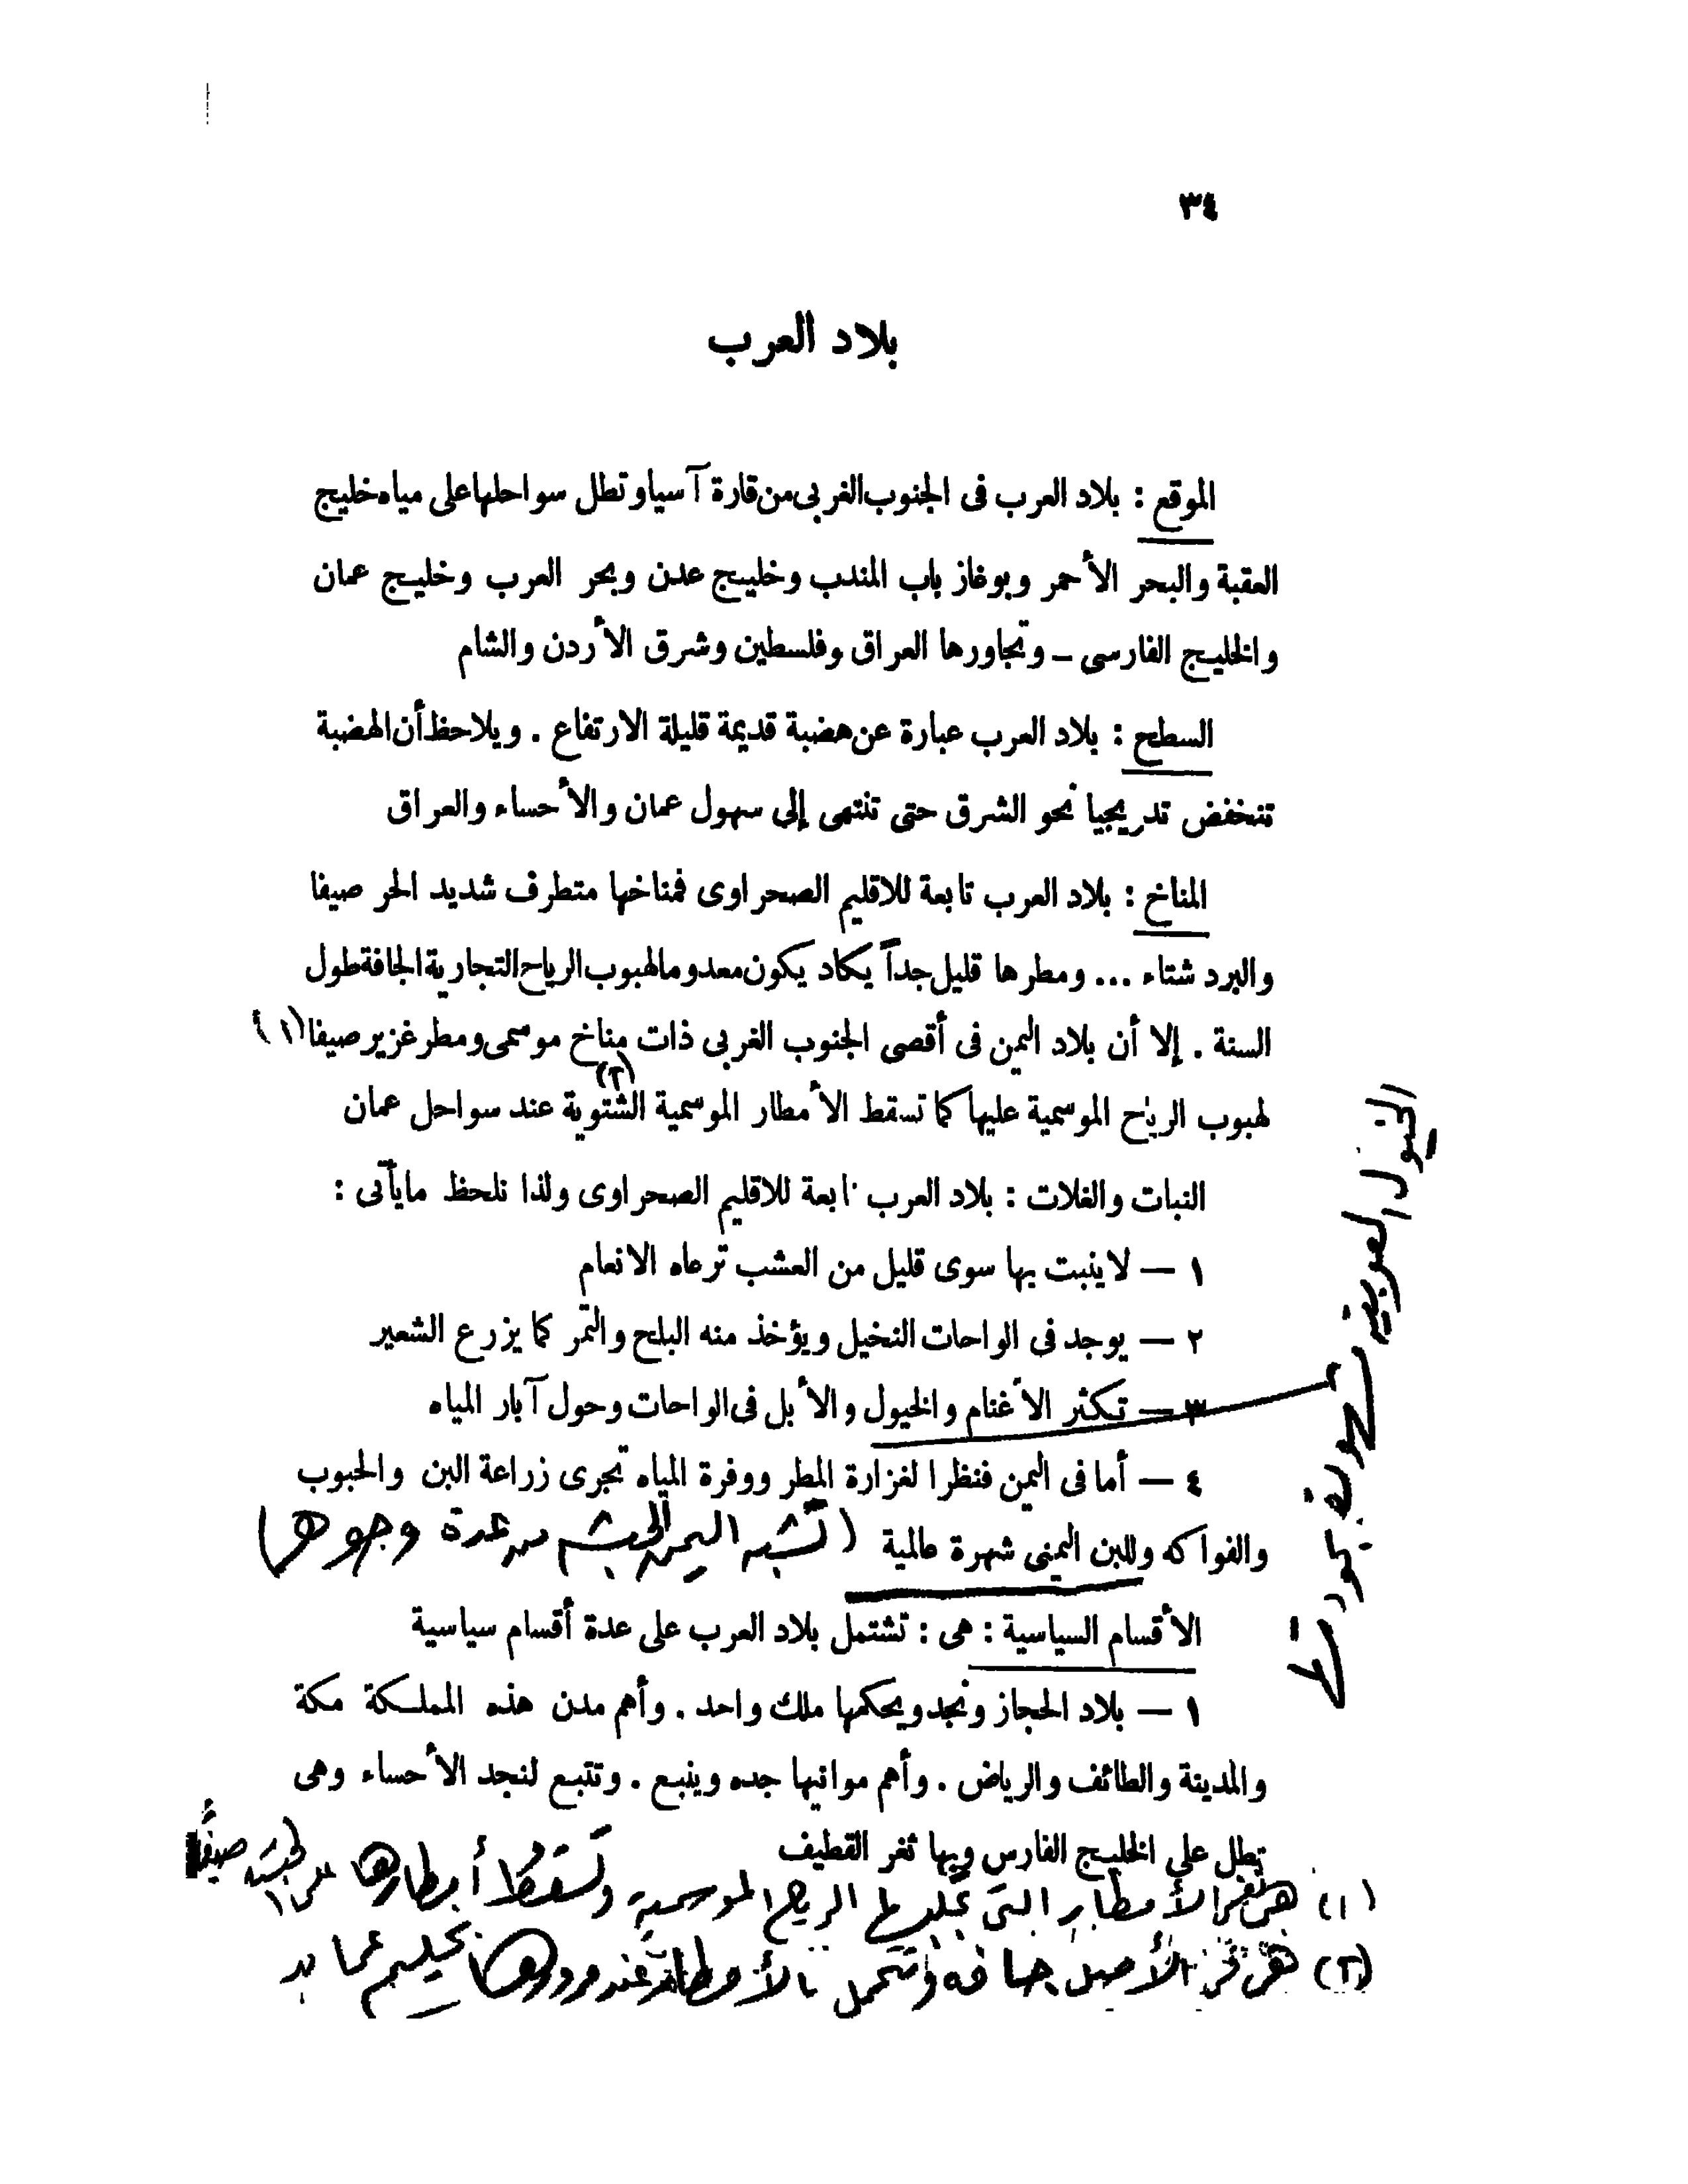 ٣٤
بلاد العرب
الموقع : بلاد العرب فى الجنوب الغربى من قارة آسيا وتطل سواحلها على مياه خليج
العقبة والبحر الأحمر وبوغاز باب المندب وخليج عدن وبحر العرب وخليج عمان
والخليج الفارسى ــ وتجاورها العراق وفلسطين وشرق الأردن والشام
السطح : بلاد العرب عبارة عن هضبة قديمة قليلة الارتفاع . ويلاحظ أن الهضبة
تنخفض تدريجيا نحو الشرق حتى تنتهى إلى سهول عمان والأحساء والعراق
المناخ : بلاد العرب تابعة للاقليم الصحراوى فمناخها متطرف شديد الحر صيفا
والبرد شتاء ... ومطرها قليل جداً يكاد يكون معدوما لهبوب الرياح التجارية الجافة طول
السنة . إلا أن بلاد اليمن فى أقصى الجنوب الغربى ذات مناخ موسمى ومطر غزير صيفا (١)
لهبوب الرياح الموسمية عليها كما تسقط الأمطار الموسمية الشتوية (٢) عند سواحل عمان
النبات والغلات : بلاد العرب تابعة للاقليم الصحراوى ولذا نلحظ مايأتى :
١ — لاينبت بها سوى قليل من العشب ترعاه الانعام
٢ — يوجد فى الواحات النخيل ويؤخذ منه البلح والتمر كما يزرع الشعير
٣ — تكثر الأغنام والخيول والأبل فى الواحات وحول آبار المياه
٤ — أما فى اليمن فنظرا لغزارة المطر ووفرة المياه تجرى زراعة البن والحبوب
والفواكه وللبن اليمنى شهرة عالمية (تشبه اليمن الحبشة من عدة وجوه)
الأقسام السياسية : هى : تشتمل بلاد العرب على عدة أقسام سياسية
١ — بلاد الحجاز ونجد ويحكمها ملك واحد . وأهم مدن هذه المملكة مكة
والمدينة والطائف والرياض . وأهم موانيها جده وينبع . وتتبع لنجد الأحساء وهى
تطل على الخليج الفارس وبها ثغر القطيف
(١) هى نفس الأمطار التى تجلبها الرياح الموسمية وتسقط أمطارها على الحبشة صيفاً
(٢) هى فى الأصل جافه وتحمل بالأمطار عند مرورها بخليج عمان
الخيول العربية مشهورة بجودتها